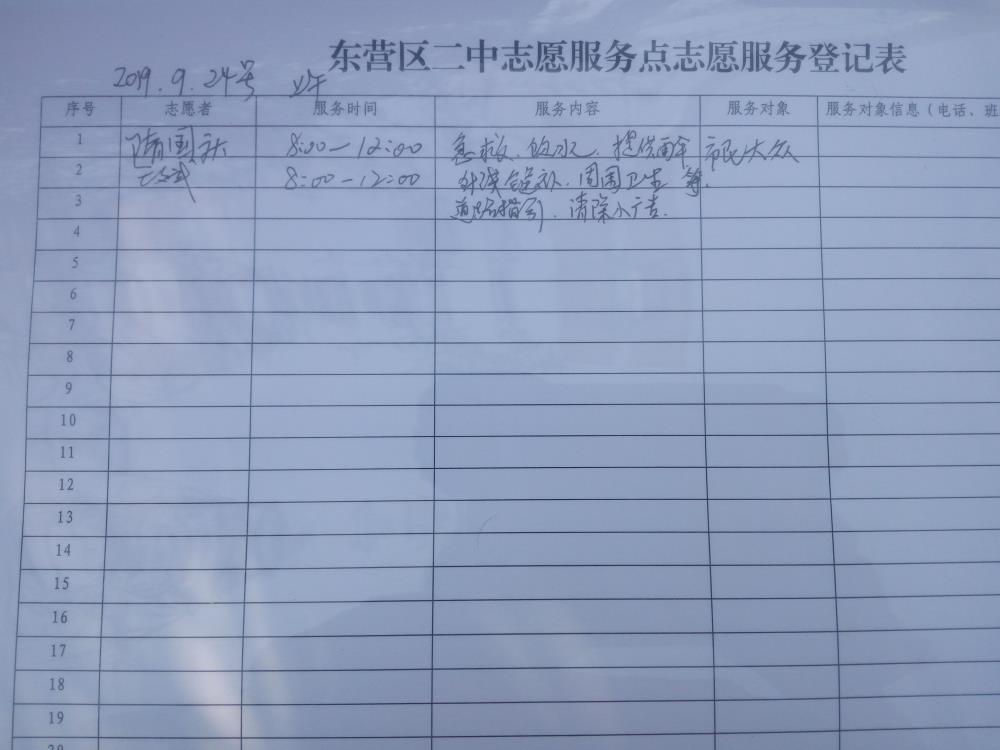 东营区二中志愿服务点志愿服务登记表
2019.9.24号 上午
序号 志愿者 服务时间 服务内容 服务对象 服务对象信息（电话、班
1 隋国 8:00—12:00 急救、饮水、提供雨伞 市民大众
2 8:00—12:00 针线缝补、周围卫生等.
3 道路指引、清除小广告.
4
5
6
7
8
9
10
11
12
13
14
15
16
17
18
19
20